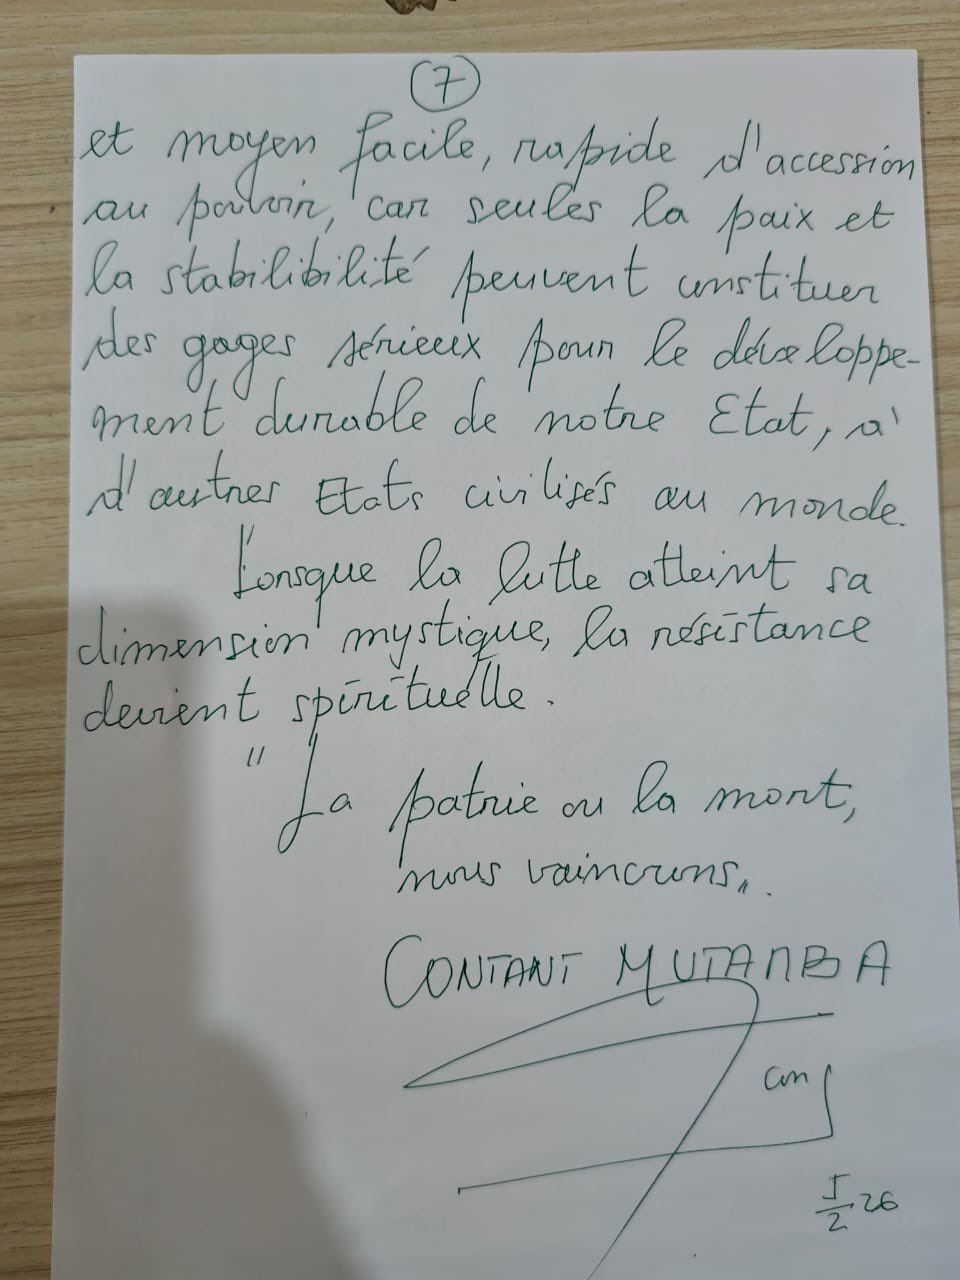 7
et moyen facile, rapide d'accession
au pouvoir, car seules la paix et
la stabilibilité peuvent constituer
des gages sérieux pour le développe-
ment durable de notre Etat, à
d'autres Etats civilisés au monde.
Lorsque la lutte atteint sa
dimension mystique, la résistance
devient spirituelle.
"La patrie ou la mort,
nous vaincrons".
CONTANT MUTAMBA
5/2 26